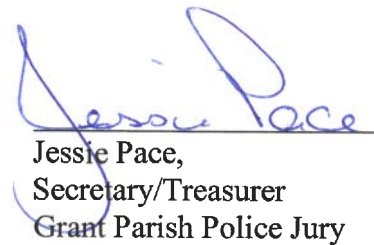 Jessie Pace
Jessie Pace,
Secretary/Treasurer
Grant Parish Police Jury